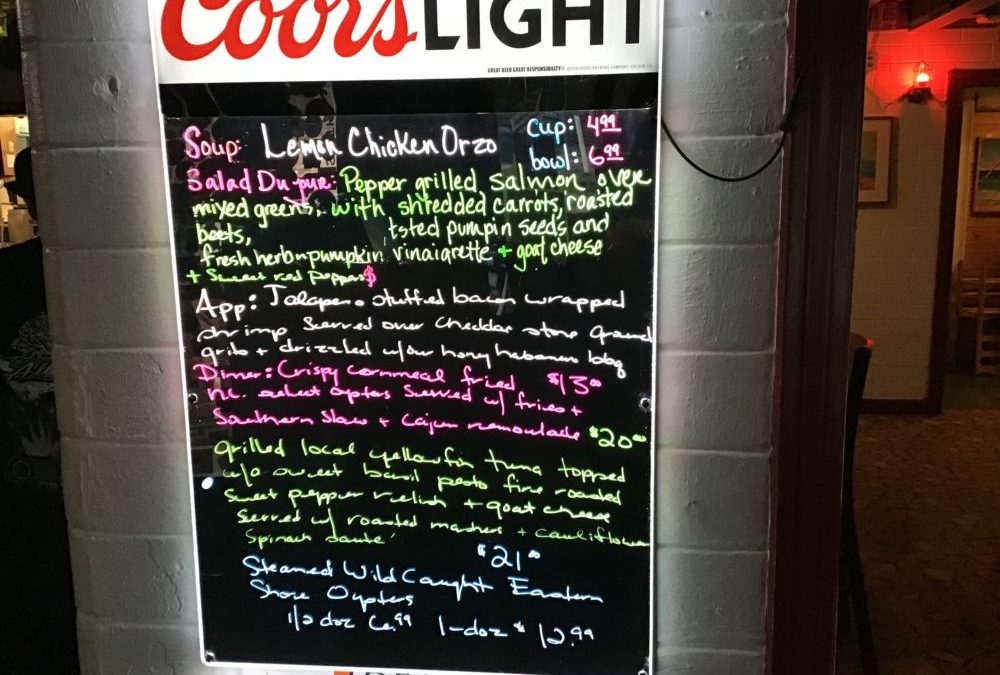 Coors LIGHT
GREAT BEER GREAT RESPONSIBILITY
Soup: Lemon Chicken Orzo Cup: 4.99
bowl: 6.99
Salad Du jour: Pepper grilled salmon over
mixed greens, with shredded carrots, roasted
beets, tsted pumpin seeds and
fresh herb pumpkin vinaigrette + goat cheese
+ Sweet red peppers $
App: Jalapeno stuffed bacon wrapped
shrimp served over cheddar stone ground
grits + drizzled w/our honey habanero bbq
Dinner: Crispy cornmeal fried $13.00
n.c. select oysters served w/ fries +
Southern Slaw + Cajun remoulade $20.00
grilled local yellowfin tuna topped
w/a sweet basil pesto fire roasted
sweet pepper relish + goat cheese
served w/ roasted mashers + cauliflower
Spinach saute'
$21.00
Steamed Wild Caught Eastern
Shore Oysters
1/2 doz 6.99 1-doz $12.99